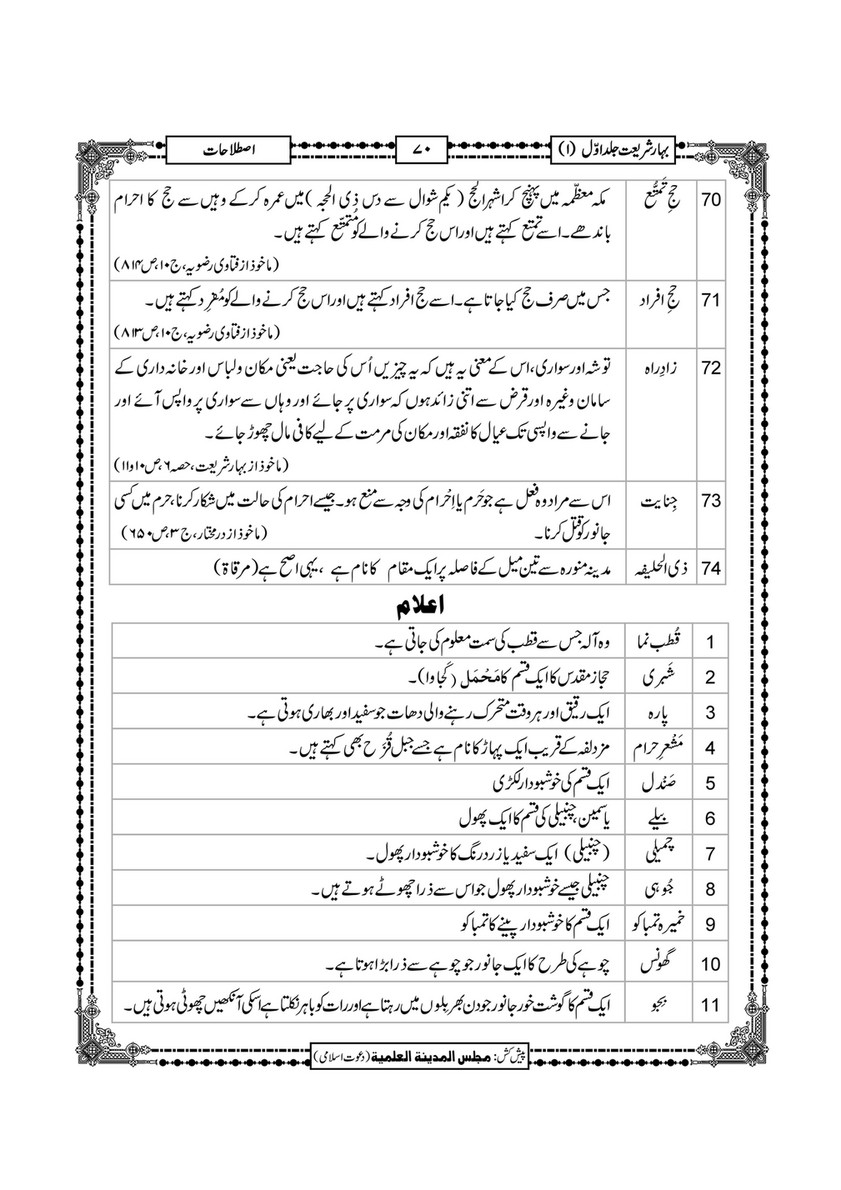 بہارِ شریعت جلد اوّل (۱) ۷۰ اصطلاحات
70 حجِ تَمتُّع مکہ معظّمہ میں پہنچ کر اشہر الحج (یکم شوال سے دس ذی الحجہ) میں عمرہ کرکے وہیں سے حج کا احرام
باندھے۔ اسے تمتع کہتے ہیں اور اس حج کرنے والے کو مُتمتّع کہتے ہیں۔
(ماخوذ از فتاوی رضویہ، ج۱۰، ص۸۱۴)
71 حجِ افراد جس میں صرف حج کیا جاتا ہے۔ اسے حج افراد کہتے ہیں اور اس حج کرنے والے کو مُفرِد کہتے ہیں۔
(ماخوذ از فتاوی رضویہ، ج۱۰، ص۸۱۳)
72 زادِراہ توشہ اور سواری، اس کے معنی یہ ہیں کہ یہ چیزیں اُس کی حاجت یعنی مکان ولباس اور خانہ داری کے
سامان وغیرہ اور قرض سے اتنی زائد ہوں کہ سواری پر جائے اور وہاں سے سواری پر واپس آئے اور
جانے سے واپسی تک عیال کا نفقہ اور مکان کی مرمت کے لیے کافی مال چھوڑ جائے۔
(ماخوذ از بہار شریعت، حصہ ۶، ص۱۰ و۱۱)
73 جِنایت اس سے مراد وہ فعل ہے جو حَرم یا اِحْرام کی وجہ سے منع ہو۔ جیسے احرام کی حالت میں شکار کرنا، حرم میں کسی
جانور کو قتل کرنا۔ (ماخوذ از درمختار، ج۳، ص۶۵۰)
74 ذی الحلیفہ مدینہ منورہ سے تین میل کے فاصلہ پر ایک مقام کا نام ہے، یہی اصح ہے (مرقاۃ)
اعلام
1 قُطب نما وہ آلہ جس سے قطب کی سمت معلوم کی جاتی ہے۔
2 شَبری حجاز مقدس کا ایک قسم کا مَحْمَل (کَجاوا)۔
3 پارہ ایک رقیق اور ہر وقت متحرک رہنے والی دھات جو سفید اور بھاری ہوتی ہے۔
4 مَشْعرِ حرام مزدلفہ کے قریب ایک پہاڑ کا نام ہے جسے جبل قُزَح بھی کہتے ہیں۔
5 صَنْدل ایک قسم کی خوشبودار لکڑی
6 بیلے یاسمین، چنبیلی کی قسم کا ایک پھول
7 چمیلی (چنبیلی) ایک سفید یا زرد رنگ کا خوشبودار پھول۔
8 جُوہی چنبیلی جیسے خوشبودار پھول جو اس سے ذرا چھوٹے ہوتے ہیں۔
9 خمیرہ تمباکو ایک قسم کا خوشبودار پینے کا تمباکو
10 گھُونس چوہے کی طرح کا ایک جانور جو چوہے سے ذرا بڑا ہوتا ہے۔
11 بجو ایک قسم کا گوشت خور جانور جو دن بھر بِلوں میں رہتا ہے اور رات کو باہر نکلتا ہے اسکی آنکھیں چھوٹی ہوتی ہیں۔
پیش کش: مجلس المدینۃ العلمیۃ (دعوت اسلامی)